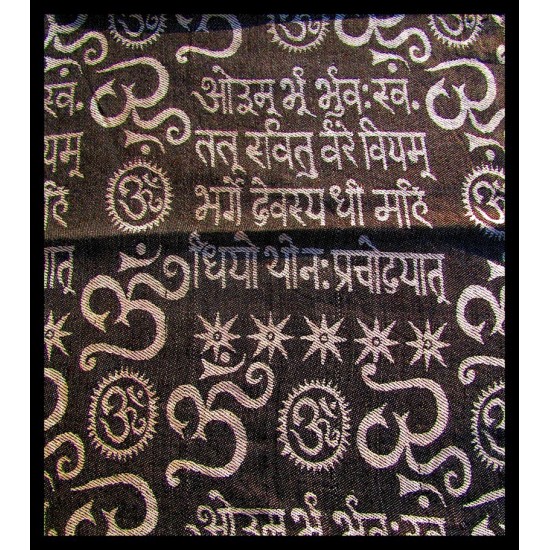 ॐ ॐ
स्वं. ओउम् भूं र्भुवः स्वं.
यम् तत् र्सवितु र्वरे वियम्
महि ॐ भर्गे देवस्य धी महि ॐ
यात् धियो योनः प्रचोदयात्
ॐ ॐ
ॐ ॐ ॐ ॐ
ओउम् भूं र्भुवः स्वं.